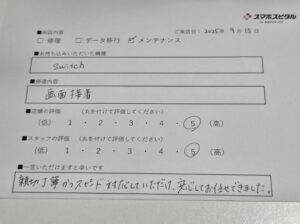 スマホスピタル
■来店内容
ご来店日：2025年9月15日
□修理 □データ移行 ☑メンテナンス
■お持ち込みいただいた機種
switch
■修理内容
画面接着
■店舗の評価 (丸を付けて評価してください)
(低) 1 ・ 2 ・ 3 ・ 4 ・ 5 (高)
■スタッフの評価 (丸を付けて評価してください)
(低) 1 ・ 2 ・ 3 ・ 4 ・ 5 (高)
■一言いただけますと幸いです
親切丁寧かつスピード対応していただけ、安心してお任せできました。